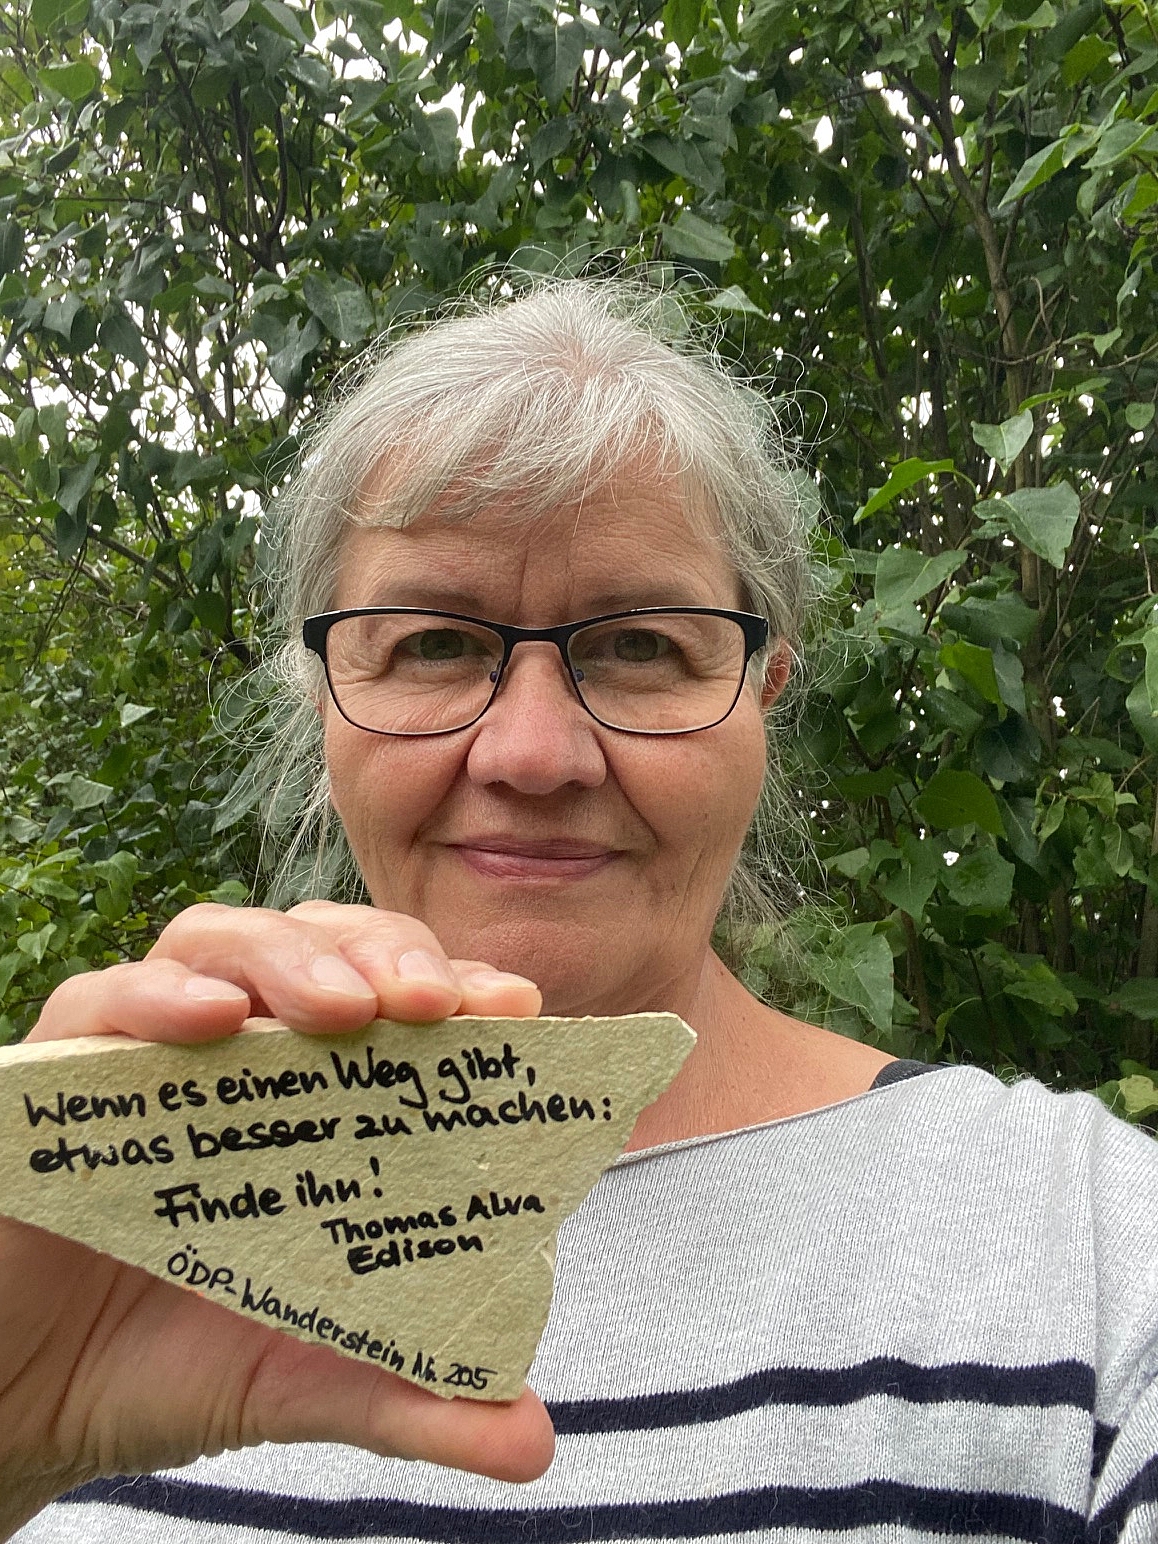 Wenn es einen Weg gibt,
etwas besser zu machen:
Finde ihn!
Thomas Alva
Edison
ÖDP-Wanderstein Nr. 205